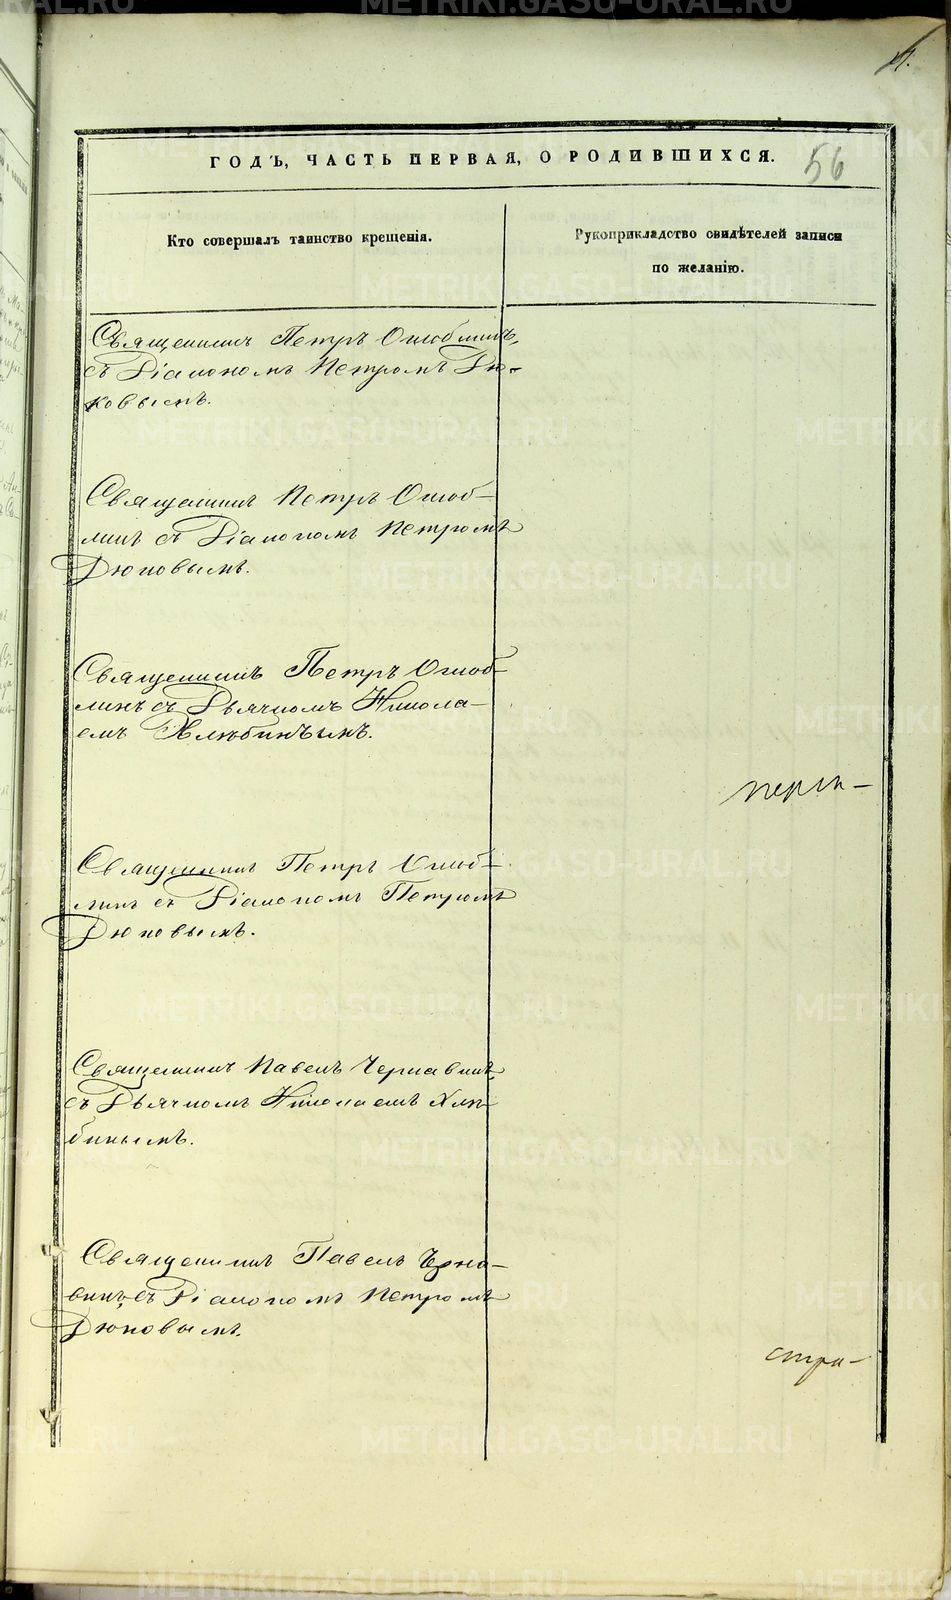 ГОДЪ, ЧАСТЬ ПЕРВАЯ, О РОДИВШИХСЯ.
56
Кто совершалъ таинство крещенія.
Рукоприкладство свидѣтелей записи
по желанію.
Священникъ Петръ Оглоблинъ,
съ Діакономъ Петромъ Дю-
ковымъ.
Священникъ Петръ Оглоб-
линъ съ Діакономъ Петромъ
Дюковымъ.
Священникъ Петръ Оглоб-
линъ съ Дьячкомъ Никола-
емъ Хлѣбинымъ.
Священникъ Петръ Оглоб-
линъ съ Діакономъ Петромъ
Дюковымъ.
Священникъ Павелъ Чернавинъ,
съ Дьячкомъ Николаемъ Хлѣ-
бинымъ.
Священникъ Павелъ Черна-
винъ, съ Діакономъ Петромъ
Дюковымъ.
METRIKI.GASO-URAL.RU